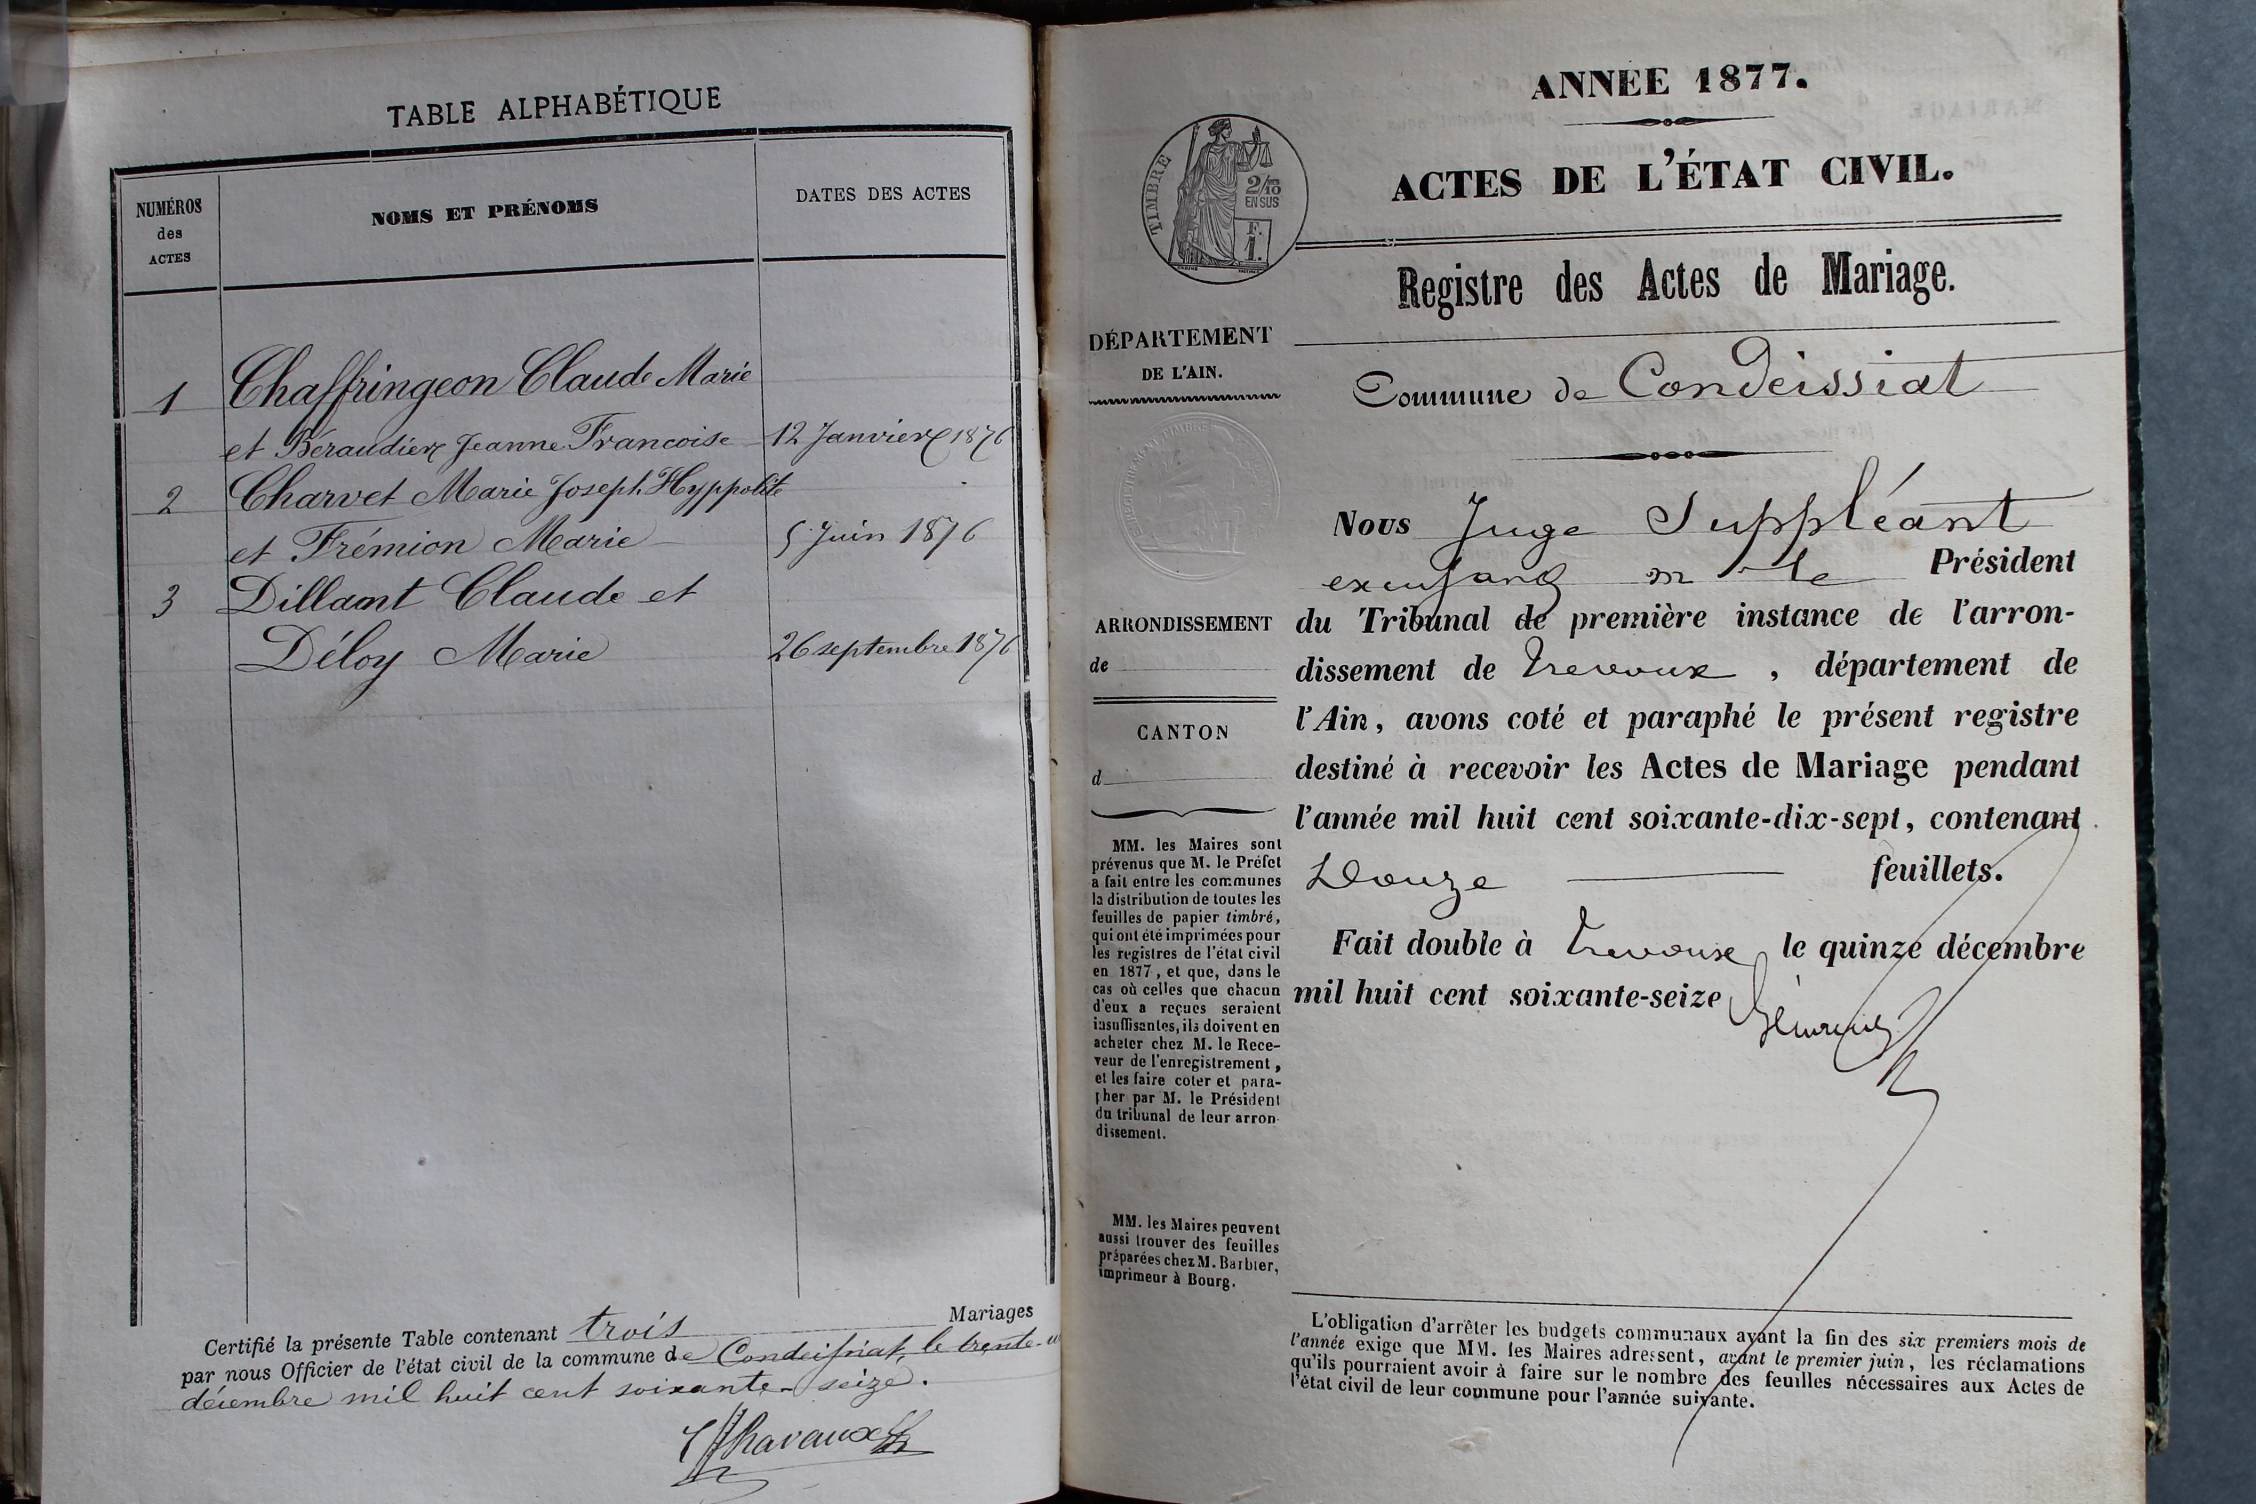 TABLE ALPHABÉTIQUE
NUMÉROS
des
ACTES
NOMS ET PRÉNOMS
DATES DES ACTES
1 Chaffringeon Claude Marie
et Béraudier Jeanne Francoise 12 Janvier 1876
2 Charvet Marie Joseph Hyppolite
et Frémion Marie 5 Juin 1876
3 Dillamt Claude et
Déloy Marie 26 septembre 1876
Certifié la présente Table contenant trois Mariages
par nous Officier de l'état civil de la commune de Condeissiat, le trente-un
décembre mil huit cent soixante-seize.
ANNÉE 1877.
ACTES DE L'ÉTAT CIVIL.
TIMBRE
2/10
EN SUS
F.
1.
Registre des Actes de Mariage.
DÉPARTEMENT
DE L'AIN.
Commune de Condeissiat
Nous Juge Suppléant
Président
du Tribunal de première instance de l'arron-
dissement de Trevoux, département de
l'Ain, avons coté et paraphé le présent registre
destiné à recevoir les Actes de Mariage pendant
l'année mil huit cent soixante-dix-sept, contenant
Douze feuillets.
Fait double à Trevoux le quinze décembre
mil huit cent soixante-seize
ARRONDISSEMENT
de
CANTON
d
MM. les Maires sont
prévenus que M. le Préfet
a fait entre les communes
la distribution de toutes les
feuilles de papier timbré,
qui ont été imprimées pour
les registres de l'état civil
en 1877, et que, dans le
cas où celles que chacun
d'eux a reçues seraient
insuffisantes, ils doivent en
acheter chez M. le Rece-
veur de l'enregistrement,
et les faire coter et para-
pher par M. le Président
du tribunal de leur arron-
dissement.
MM. les Maires peuvent
aussi trouver des feuilles
préparées chez M. Barbier,
imprimeur à Bourg.
L'obligation d'arrêter les budgets communaux avant la fin des six premiers mois de
l'année exige que MM. les Maires adressent, avant le premier juin, les réclamations
qu'ils pourraient avoir à faire sur le nombre des feuilles nécessaires aux Actes de
l'état civil de leur commune pour l'année suivante.